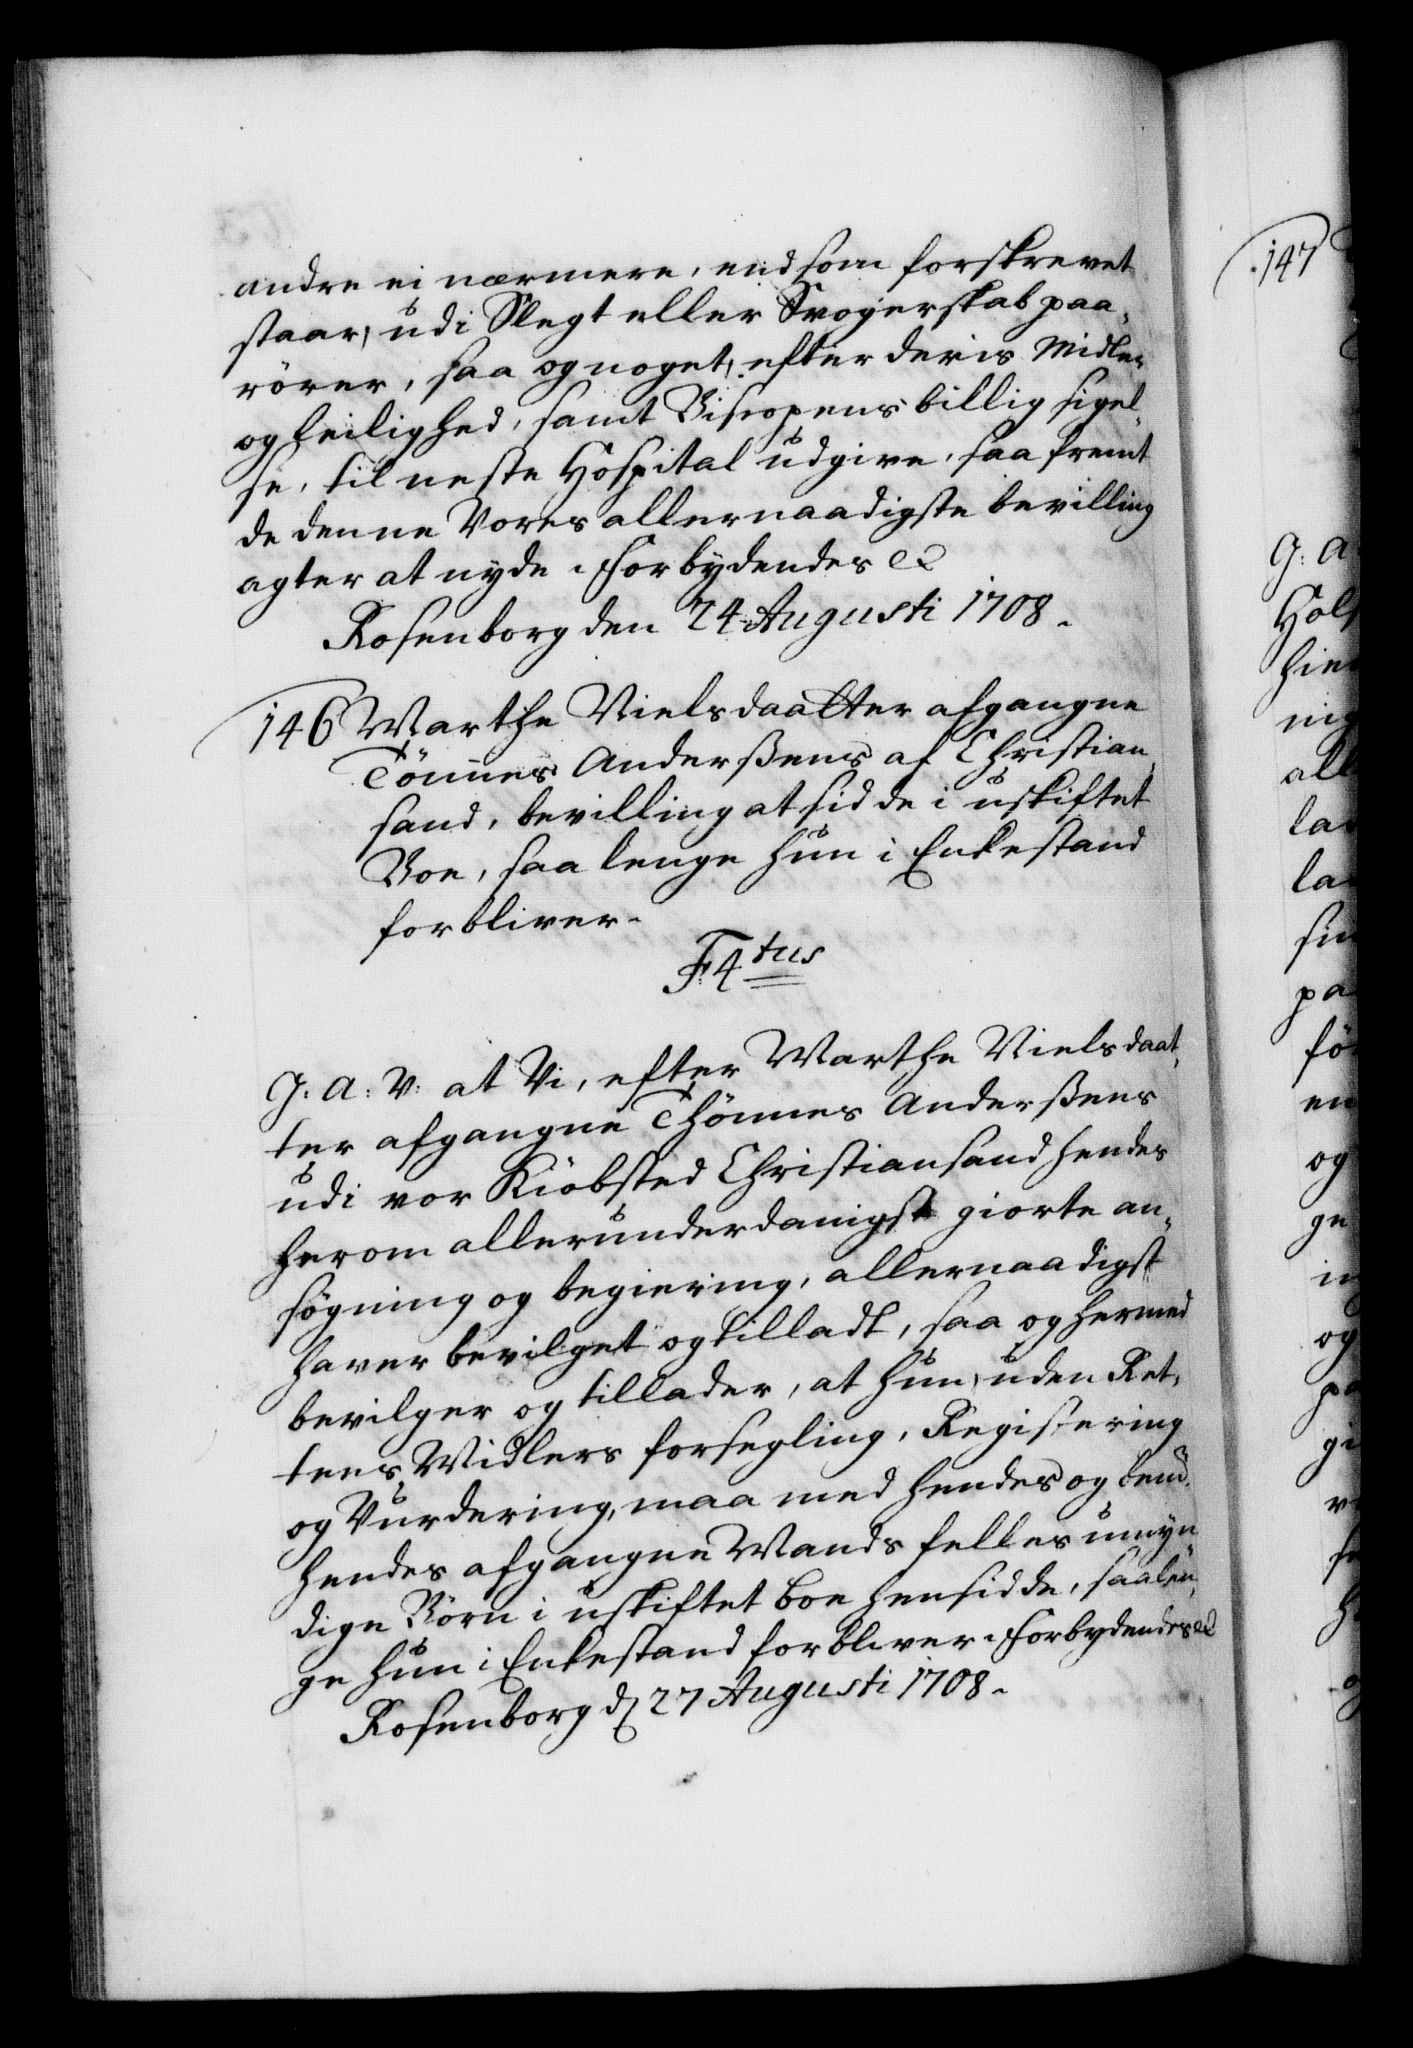 andre ei nærmere, end som forskrevet
staar, udi Slegt eller Svogerskab paa„
rører, saa og noget, efter deris Midler
og leilighed, samt Biscopens billig sigel„
se, til neste Hospital udgive, saa fremt
de denne Vores allernaadigste bevilling
agter at nyde. Forbydendes etc
Rosenborg den 24 Augusti 1708.
146 Marthe Nielsdaatter afgangne
Tönnes Anderßens af Christian„
sand, bevilling at sidde i uskiftet
Boe, saa lenge hun i Enkestand
forbliver.
F: 4tus
G: A: V: at Vi, efter Marthe Nielsdaat„
ter afgangne Thönnes Anderßens
udi vor Kiöbsted Christiansand hendes
herom allerunderdanigst giorte an„
søgning og begiering, allernaadigst
haver bevilget og tilladt, saa og hermed
bevilger og tillader, at hun, uden Ret„
tens Midlers forsegling, Registering
og Vurdering, maa med hendes og bem:te
hendes afgangne Mands felles umyn„
dige Börn i uskiftet boe hensidde, saalen„
ge hun i Enkestand forbliver. Forbydendes etc
Rosenborg d 27 Augusti 1708.
147
G: A